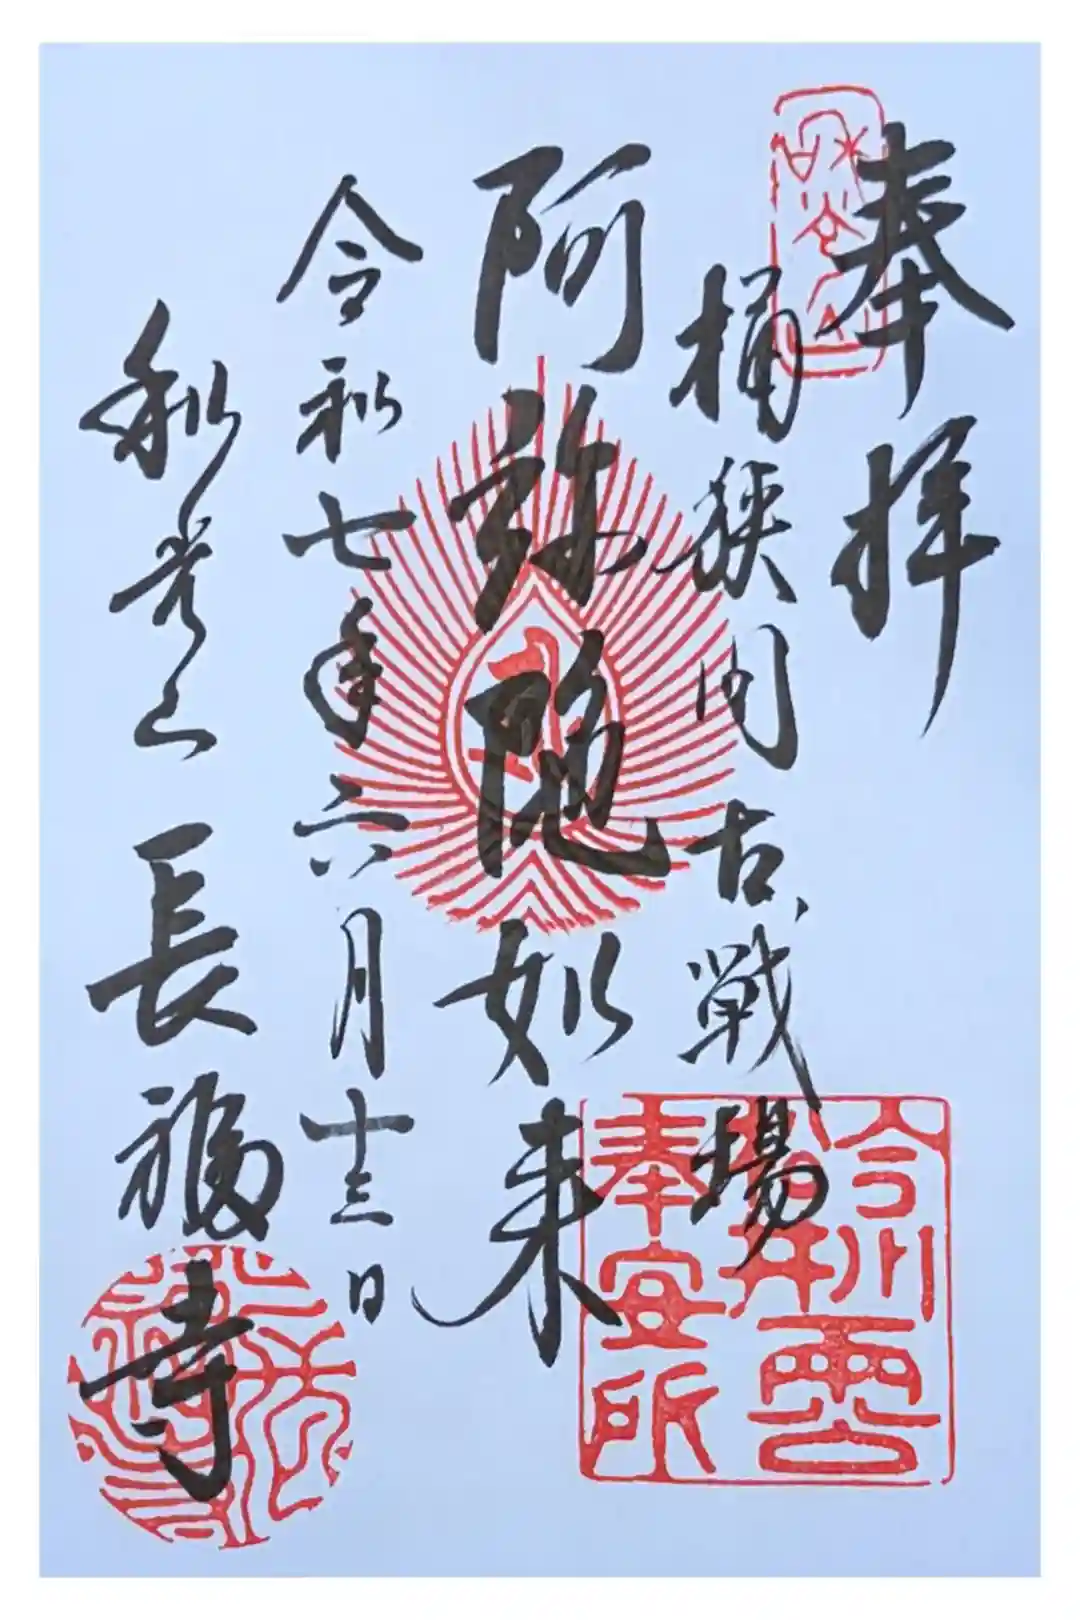 奉拝
桶狭間古戦場
阿弥陀如来
令和七年六月十三日
和光山
長福寺
今川
井雲公
奉安所